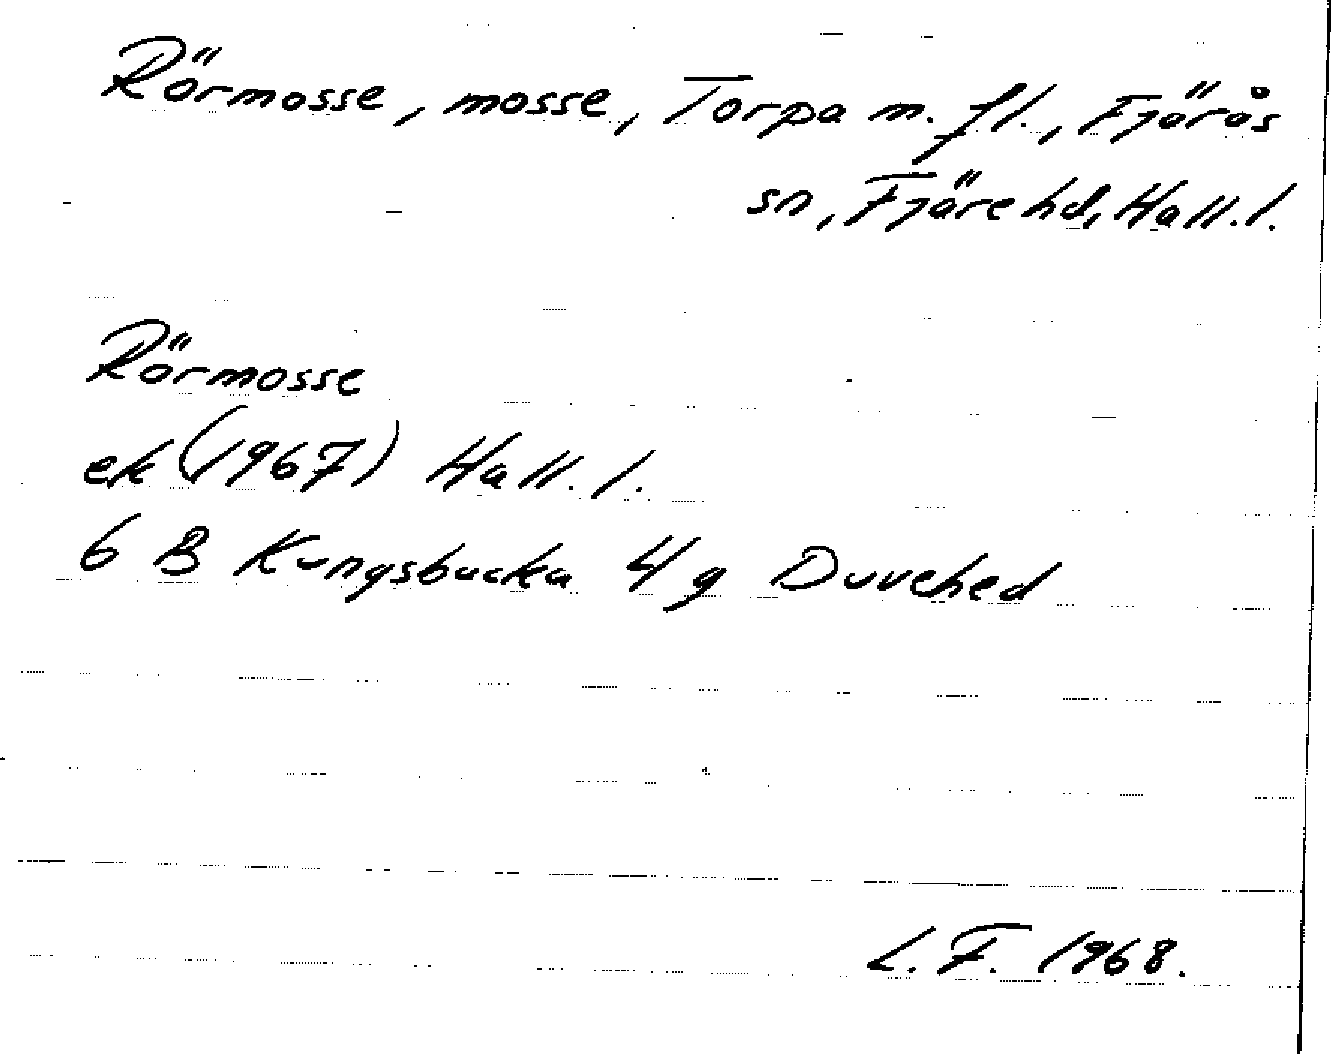 Rörmosse, mosse, Torpa m.fl., Fjärås
sn, Fjäre hd, Hall.l.
Rörmosse
ek (1967) Hall.l.
6 B Kungsbacka 4 g Duvehed
L.F. 1968.